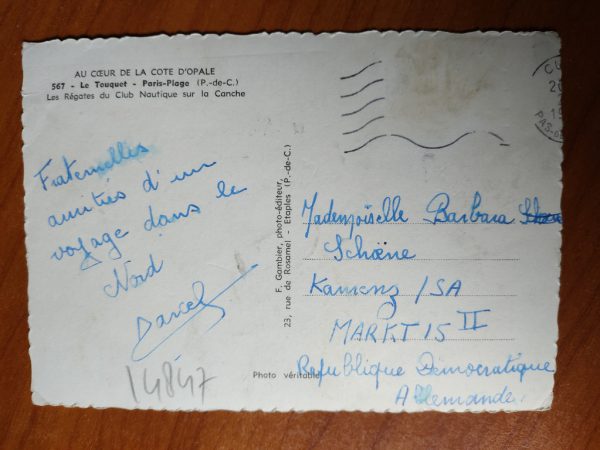 AU CŒUR DE LA COTE D'OPALE
567 - Le Touquet - Paris-Plage (P.-de-C.)
Les Régates du Club Nautique sur la Canche
Fraternelles
amitiés d'un
voyage dans le
Nord
14847
F. Gambier, photo-éditeur,
23, rue de Rosamel - Etaples (P.-de-C.)
Photo véritable
PAS-
Mademoiselle Barbara
Schöne
Kamenz/SA
MARKT 15 II
Republique Démocratique
Allemande